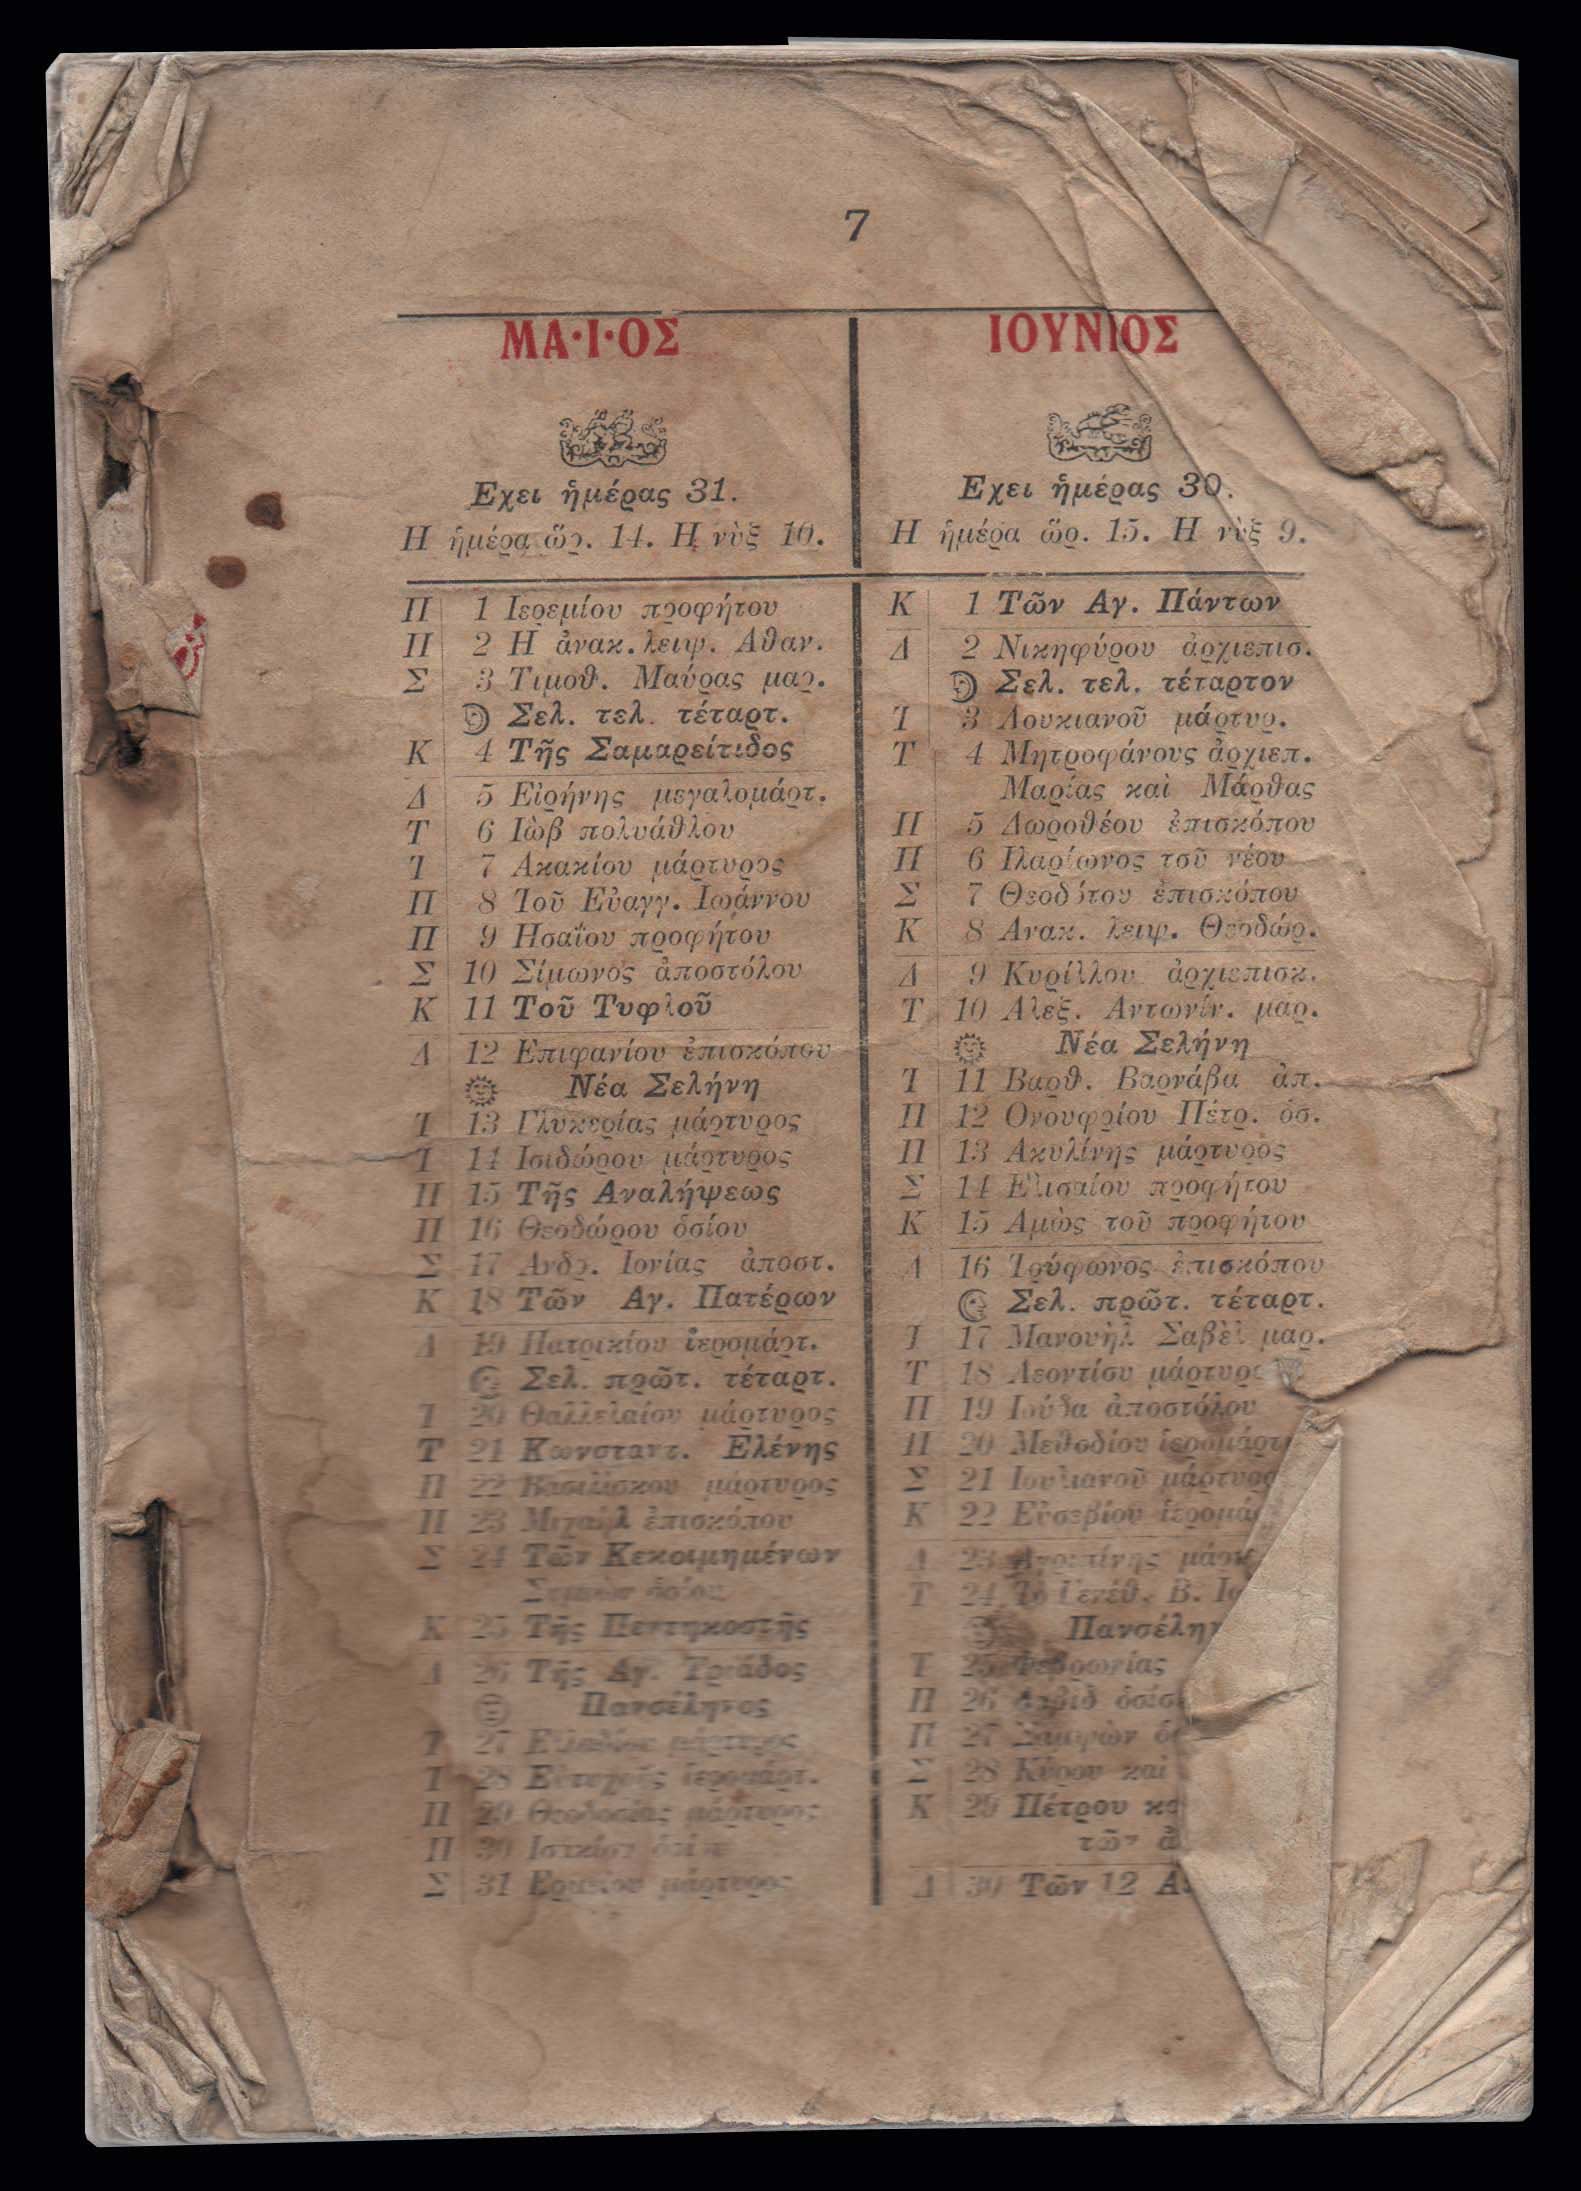 7
ΜΑ·Ι·ΟΣ
Εχει ἡμέρας 31.
Η ἡμέρα ὥρ. 14. Η νὺξ 10.
Π 1 Ιερεμίου προφήτου
Π 2 Η ἀνακ. λειψ. Αθαν.
Σ 3 Τιμοθ. Μαύρας μαρ.
Σελ. τελ. τέταρτ.
Κ 4 Τῆς Σαμαρείτιδος
Δ 5 Εἰρήνης μεγαλομάρτ.
Τ 6 Ιὼβ πολυάθλου
Τ 7 Ακακίου μάρτυρος
Π 8 Τοῦ Εὐαγγ. Ιωάννου
Π 9 Ησαΐου προφήτου
Σ 10 Σίμωνος ἀποστόλου
Κ 11 Τοῦ Τυφλοῦ
Δ 12 Επιφανίου ἐπισκόπου
Νέα Σελήνη
Τ 13 Γλυκερίας μάρτυρος
Τ 14 Ισιδώρου μάρτυρος
Π 15 Τῆς Αναλήψεως
Π 16 Θεοδώρου ὁσίου
Σ 17 Ανδρ. Ιονίας ἀποστ.
Κ 18 Τῶν Αγ. Πατέρων
Δ 19 Πατρικίου ἱερομάρτ.
Σελ. πρῶτ. τέταρτ.
Τ 20 Θαλλελαίου μάρτυρος
Τ 21 Κωνσταντ. Ελένης
Π 22 Βασιλίσκου μάρτυρος
Π 23 Μιχαὴλ ἐπισκόπου
Σ 24 Τῶν Κεκοιμημένων
Κ 25 Τῆς Πεντηκοστῆς
Δ 26 Τῆς Αγ. Τριάδος
Πανσέληνος
Τ 27 μάρτυρος
Τ 28 Εὐτυχοῦς ἱερομάρτ.
Π 29 Θεοδοσίας μάρτυρος
Π 30
Σ 31 Ερμείου μάρτυρος
ΙΟΥΝΙΟΣ
Εχει ἡμέρας 30.
Η ἡμέρα ὥρ. 15. Η νὺξ 9.
Κ 1 Τῶν Αγ. Πάντων
Δ 2 Νικηφύρου ἀρχιεπισ.
Σελ. τελ. τέταρτον
Τ 3 Λουκιανοῦ μάρτυρ.
Τ 4 Μητροφάνους ἀρχιεπ.
Μαρίας καὶ Μάρθας
Π 5 Δωροθέου ἐπισκόπου
Π 6 Ιλαρίωνος τοῦ νέου
Σ 7 Θεοδότου ἐπισκόπου
Κ 8 Ανακ. λειψ. Θεοδώρ.
Δ 9 Κυρίλλου ἀρχιεπισκ.
Τ 10 Αλεξ. Αντωνίν. μαρ.
Νέα Σελήνη
Τ 11 Βαρθ. Βαρνάβα ἀπ.
Π 12 Ονουφρίου Πέτρ. ὁσ.
Π 13 Ακυλίνης μάρτυρος
Σ 14 Ελισαίου προφήτου
Κ 15 Αμὼς τοῦ προφήτου
Δ 16 Τρύφωνος ἐπισκόπου
Σελ. πρῶτ. τέταρτ.
Τ 17 Μανουὴλ Σαβὲλ μαρ.
Τ 18 Λεοντίου μάρτυρο
Π 19 Ιούδα ἀποστόλου
Π 20 Μεθοδίου ἱερομάρτ
Σ 21 Ιουλιανοῦ μάρτυρο
Κ 22 Εὐσεβίου ἱερομά
Δ 23 Αγριπίνης μάρτ
Τ 24 Τὸ Γενέθ. Β. Ιω
Πανσέλην
Τ 25 Φεβρωνίας
Π 26 Δαβὶδ ὁσίο
Π 27 Σαμψὼν ὁ
Σ 28 Κύρου καὶ
Κ 29 Πέτρου κα
τῶν ἀ
Δ 30 Τῶν 12 Α